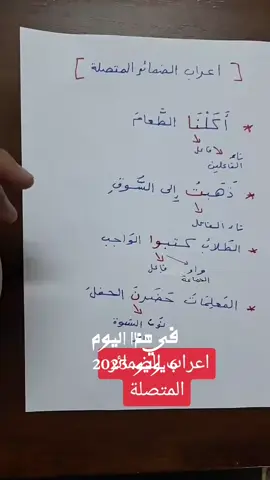 [ اعراب الضمائر المتصلة ]
* أَكَلْنَا الطَّعامَ
فاعل
الفاعلين
* ذَهَبتُ إِلى السُّوقِ
تاء الفاعل
* الطلابُ كتبوا الواجب
واو الجماعة
فاعل
* المعلماتُ حَضَرنَ الحفلَ
نون النسوة
في ١٣ اليوم
اعراب الضمائر
6 يونيو 2025
المتصلة